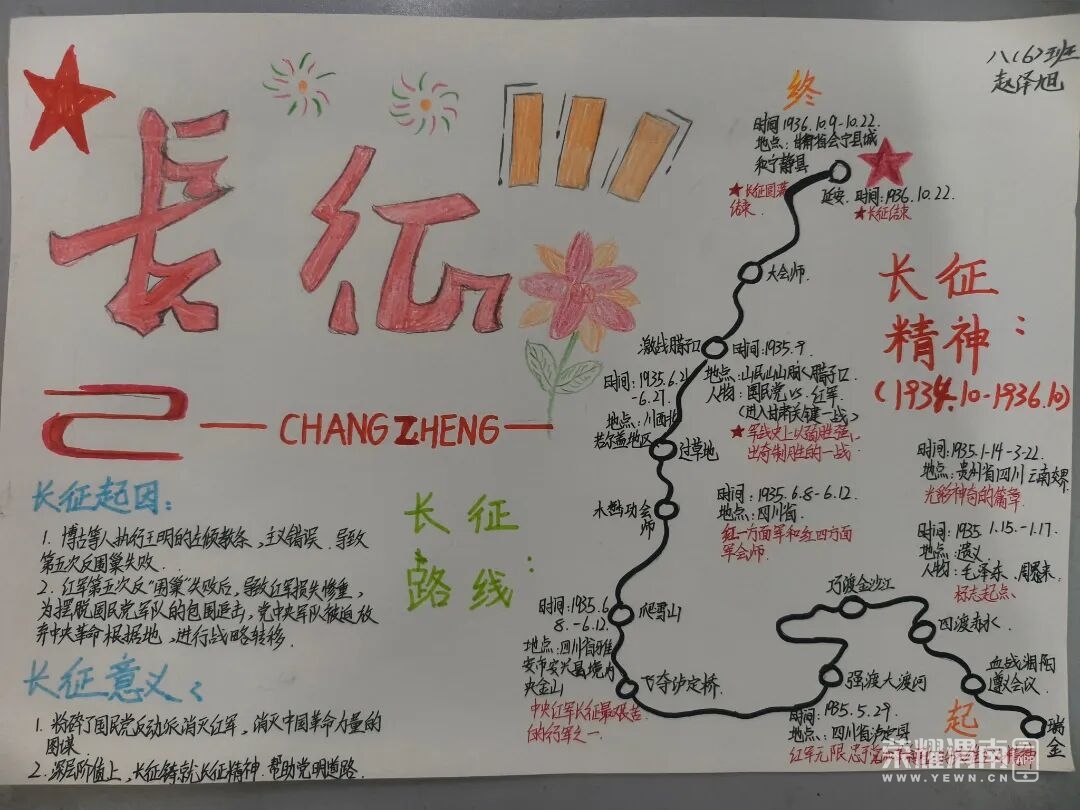 八(6)班
赵泽旭
长征
CHANGZHENG
长征起因:
1. 博古等人执行王明的左倾教条,主义错误.导致
第五次反围巢失败.
2.红军第五次反"围巢"失败后,导致红军损失惨重,
为摆脱国民党军队的包围追击,党中央军队被迫放
弃中央革命根据地,进行战略转移.
长征意义:
1.粉碎了国民党反动派消灭红军,消灭中国革命力量的
图谋.
2.深层价值上,长征铸就长征精神.帮助党明道路.
长征
路线:
终
时间1936.10.9-10.22.
地点:甘肃省会宁县城
和宁静县
★长征圆满
结束.
延安.时间:1936.10.22.
★长征结束
大会师.
激战腊子口
时间:1935.9.
地点:岷山山脉腊子口.
人物:国民党vs.红军.
(进入甘肃关键一战)
★军战史上以弱胜强,
出奇制胜的一战.
时间:1935.6.21
-6.27.
地点:川西北
若尔盖地区
过草地
木懋功会
师.
时间:1935.6.8-6.12.
地点:四川省.
红一方面军和红四方面
军会师.
时间:1935.6
8.-6.12.
地点:四川省雅
安市安兴县境内
夹金山
爬雪山
中央红军长征最艰苦
的行军之一.
飞夺泸定桥.
强渡大渡河
时间:1935.5.29.
地点:四川省泸定县
红军无限忠于党
精神
巧渡金沙江
四渡赤水.
血战湘阳
遵义会议.
起
瑞
金
长征
精神:
(1934.10-1936.10)
时间:1935.1-14-3-22.
地点:贵州省四川云南交界.
光彩神奇的篇章.
时间:1935.1.15.-1.17.
地点:遵义
人物:毛泽东、周恩来.
标志起点.
荣耀渭南APP
WWW.YEWN.CN